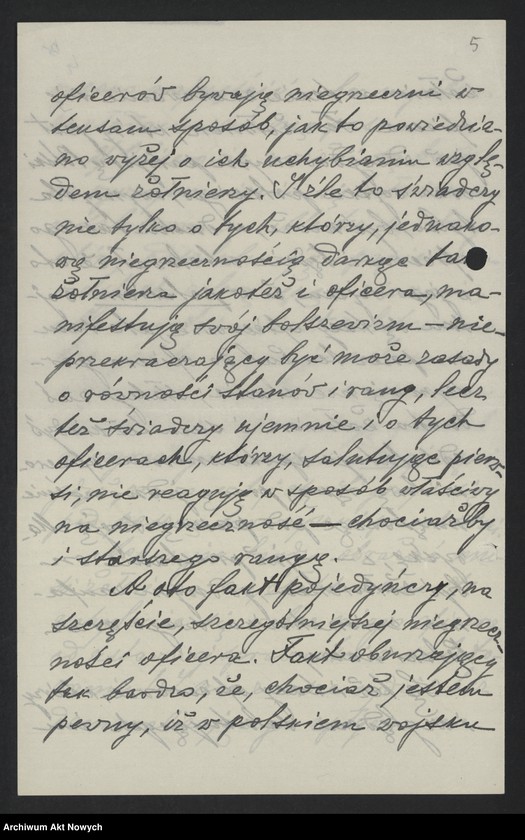 5
oficerów bywają niegrzeczni w
tensam sposób, jak to powiedzia-
no wyżej o ich uchybianiu wzglę-
dem żołnierzy. I źle to świadczy
nie tylko o tych, którzy, jednako-
wą niegrzecznością darząc tak
żołnierza jakoteż i oficera, ma-
nifestują swój bolszewizm — nie-
przekraczający być może zasady
o równości stanów i rang, lecz
też świadczy ujemnie i o tych
oficerach, którzy, salutując pierw-
si, nie reagują w sposób właściwy
na niegrzeczność — chociażby
i starszego rangą.
A oto fakt pojedyńczy, na
szczęście, szczególniejszej niegrzecz-
ności oficera. Fakt oburzający
tak bardzo, że, chociaż jestem
pewny, iż w polskiem wojsku
Archiwum Akt Nowych